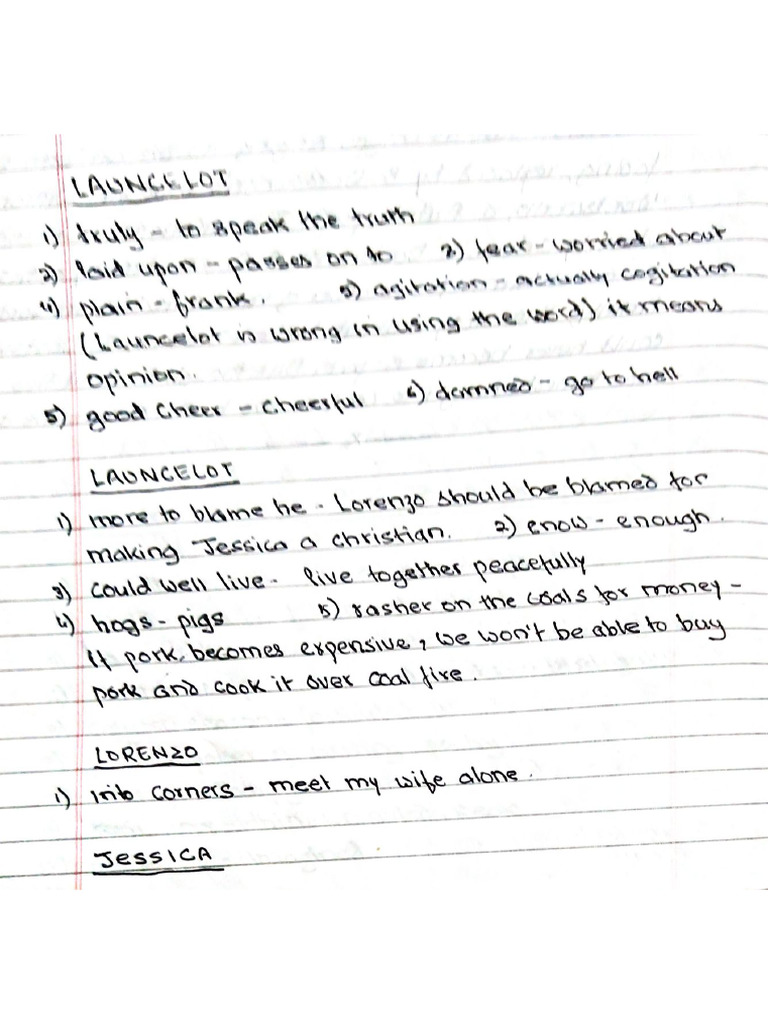 LAUNCELOT
1) truly - to speak the truth
2) laid upon - passes on to 3) fear - worried about
4) plain - frank. 5) agitation - actually cogitation
(Launcelot is wrong in using the word) it means
opinion.
5) good cheer - cheerful 6) damned - go to hell
LAUNCELOT
1) more to blame he - Lorenzo should be blamed for
making Jessica a christian. 2) enow - enough.
3) could well live - live together peacefully
4) hogs - pigs 5) rasher on the coals for money -
If pork becomes expensive, we won't be able to buy
pork and cook it over coal fire.
LORENZO
1) into corners - meet my wife alone.
JESSICA